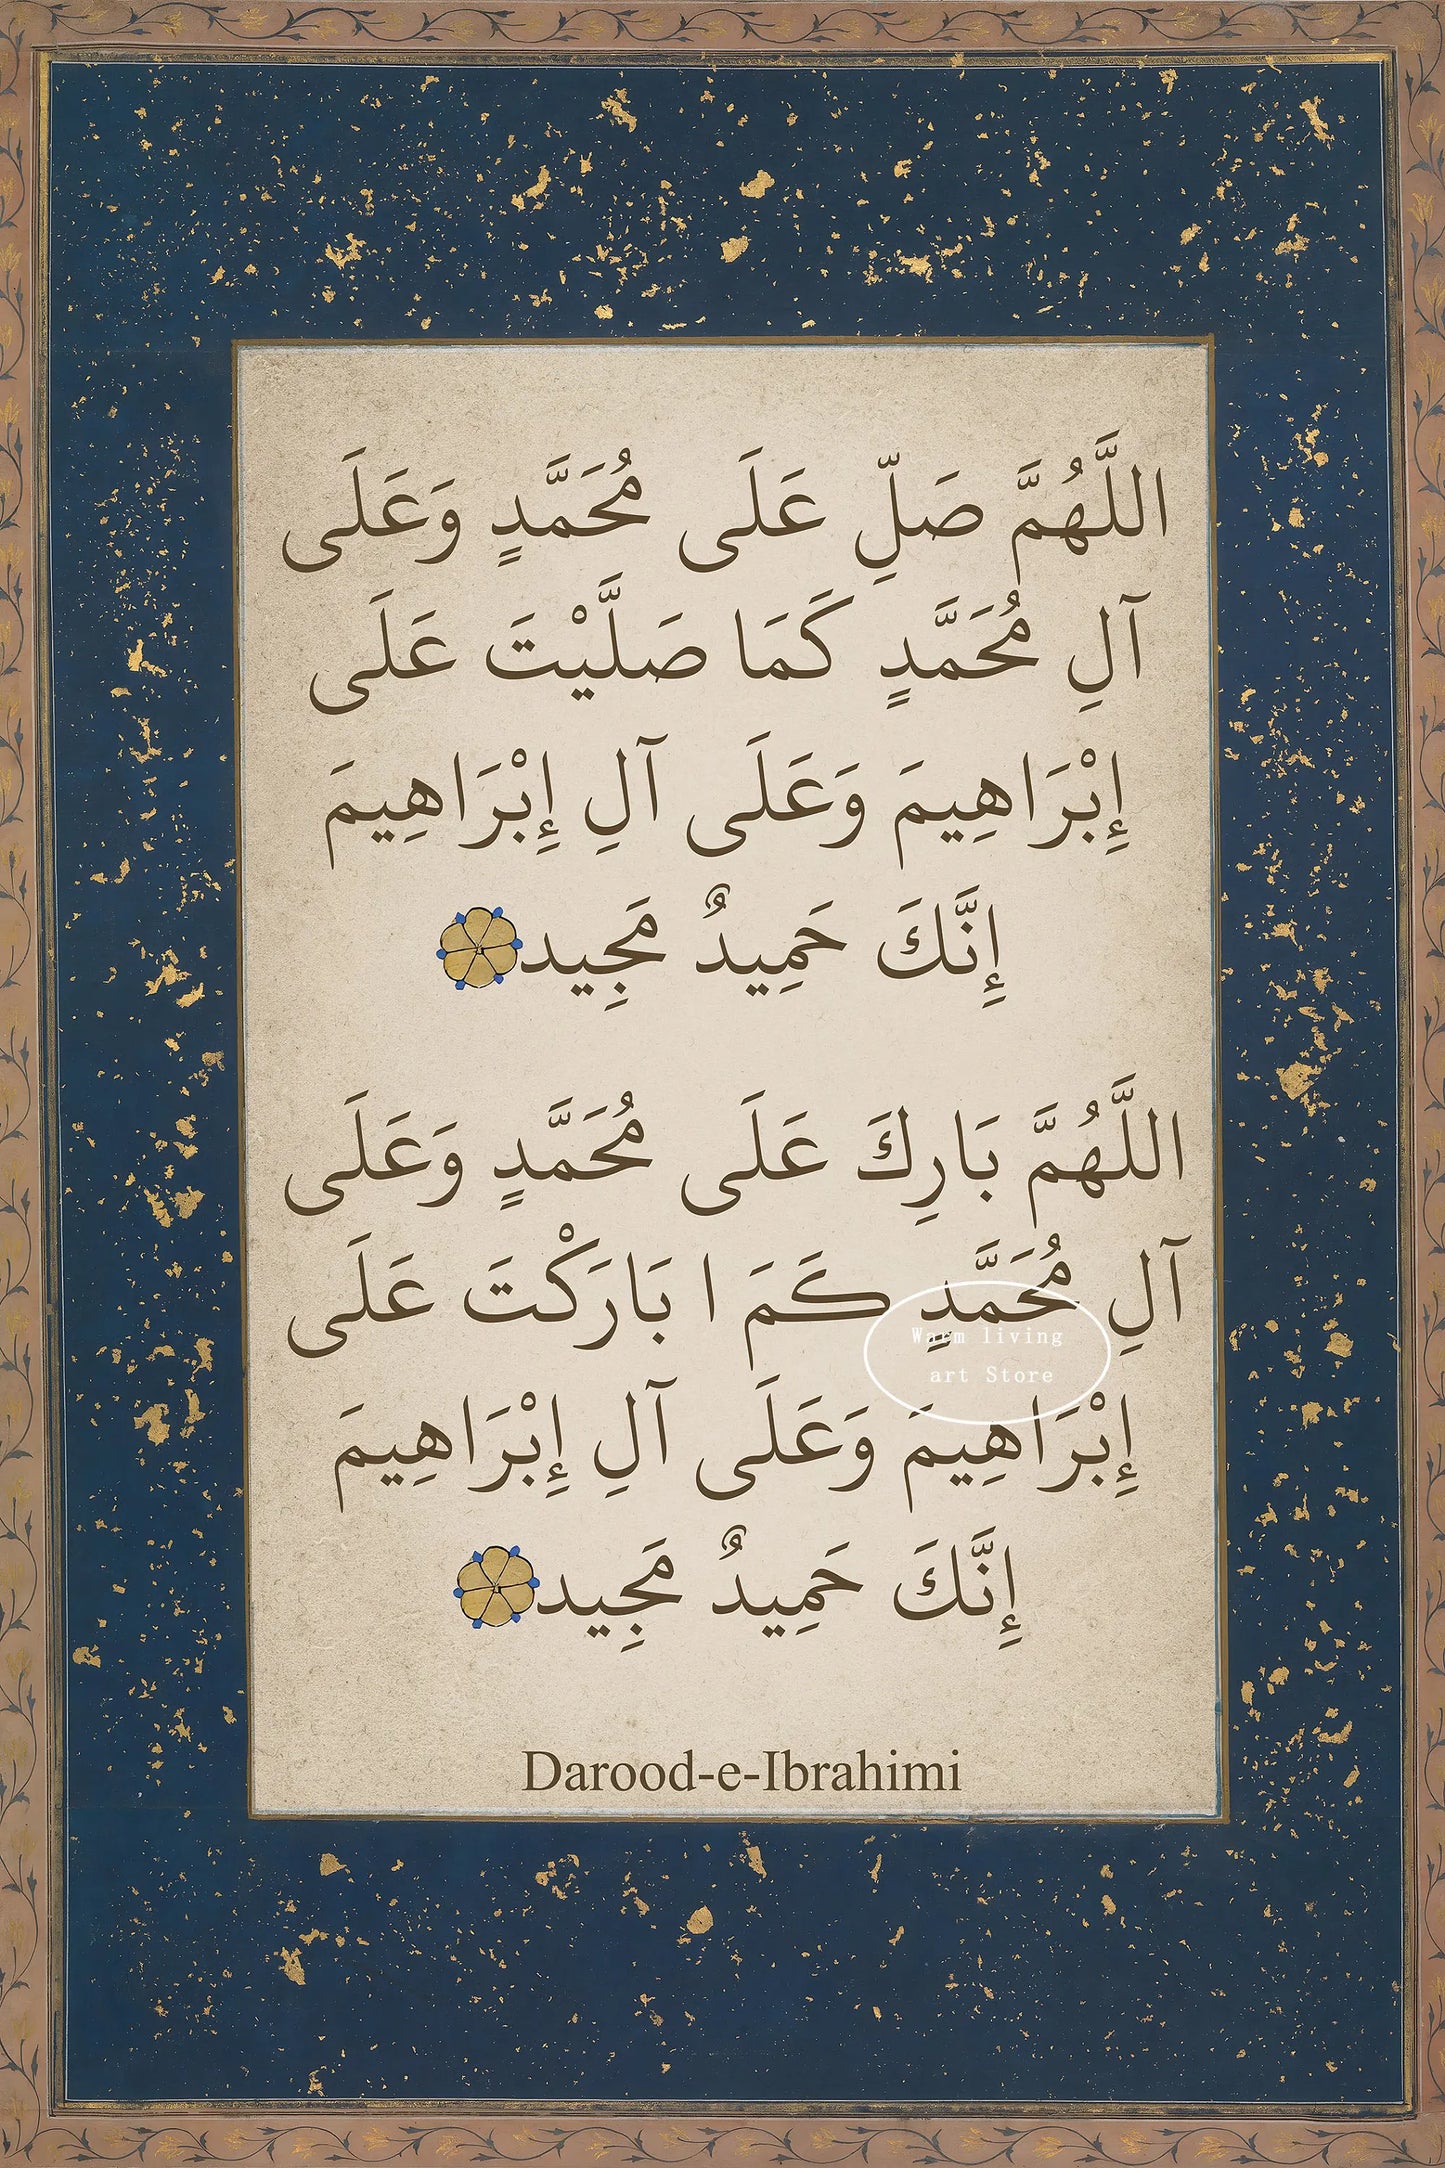 اللَّهُمَّ صَلِّ عَلَى مُحَمَّدٍ وَعَلَى
آلِ مُحَمَّدٍ كَمَا صَلَّيْتَ عَلَى
إِبْرَاهِيمَ وَعَلَى آلِ إِبْرَاهِيمَ
إِنَّكَ حَمِيدٌ مَجِيد
اللَّهُمَّ بَارِكَ عَلَى مُحَمَّدٍ وَعَلَى
آلِ مُحَمَّدٍ كَمَ ا بَارَكْتَ عَلَى
Warm living
art Store
إِبْرَاهِيمَ وَعَلَى آلِ إِبْرَاهِيمَ
إِنَّكَ حَمِيدٌ مَجِيد
Darood-e-Ibrahimi